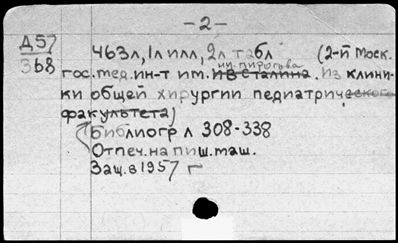 -2-
Д57
368
463л, 1л илл, 2л табл (2-й Моск.
им. Пирогова
гос. мед. ин-т им. И В Сталина. Из клини-
ки общей хирургии педиатрического
факультета)
Библиогр л 308-338
Отпеч. на пиш. маш.
Защ. в 1957 г